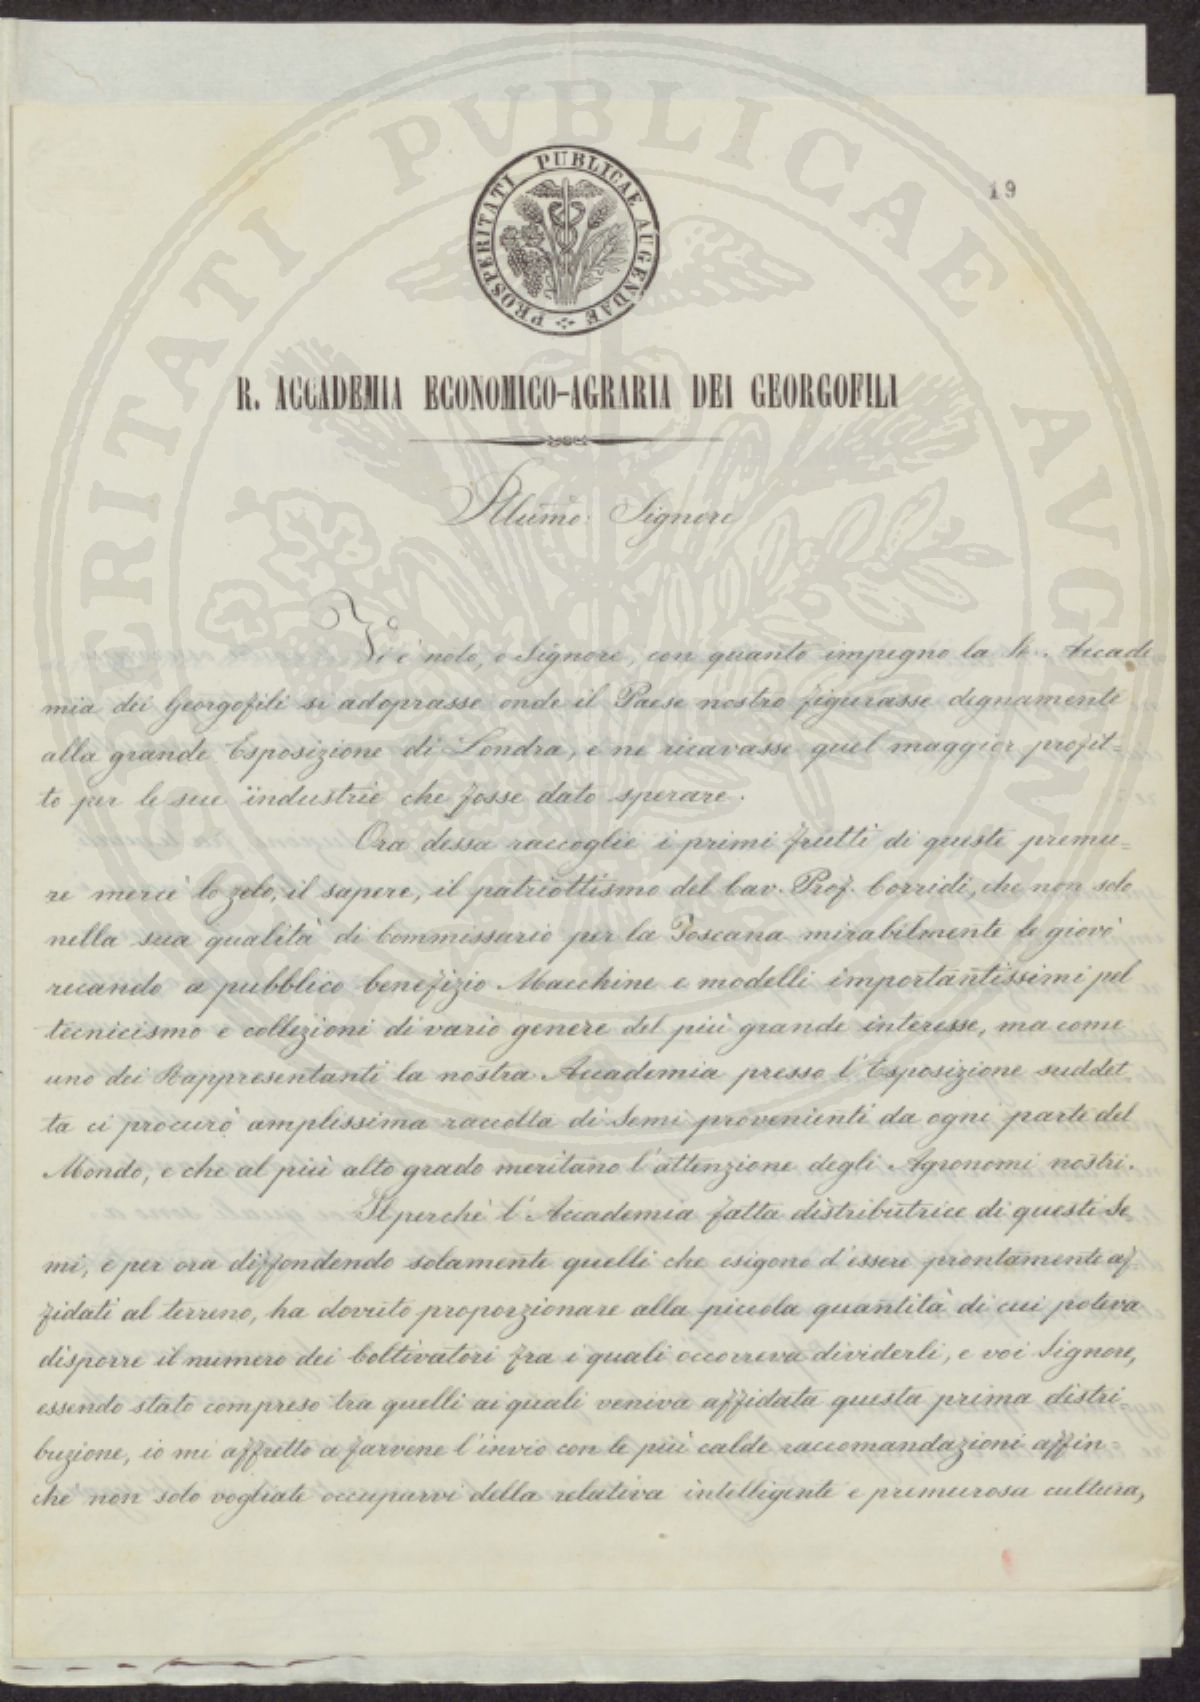 19
PROSPERITATI PUBLICAE AUGENDAE
R. ACCADEMIA ECONOMICO-AGRARIA DEI GEORGOFILI
Illumo: Signore
Vi è noto, o Signore, con quanto impegno la R. Accade-
mia dei Georgofili si adoprasse onde il Paese nostro figurasse degnamente
alla grande Esposizione di Londra, e ne ricavasse quel maggior profit=
to per le sue industrie che fosse dato sperare.
Ora dessa raccoglie i primi frutti di queste premu=
re mercè lo zelo, il sapere, il patriottismo del Cav. Prof. Corridi, che non solo
nella sua qualità di Commissario per la Toscana mirabilmente le giovò
recando a pubblico benefizio Macchine e modelli importantissimi pel
tecnicismo e collezioni di vario genere del più grande interesse, ma come
uno dei Rappresentanti la nostra Accademia presso l'Esposizione suddet-
ta ci procurò amplissima raccolta di Semi provenienti da ogni parte del
Mondo, e che al più alto grado meritano l'attenzione degli Agronomi nostri.
Il perchè l'Accademia fatta distributrice di questi Se-
mi, e per ora diffondendo solamente quelli che esigono d'essere prontamente af-
fidati al terreno, ha dovuto proporzionare alla piccola quantità di cui poteva
disporre il numero dei Coltivatori fra i quali occorreva dividerli, e voi Signore,
essendo stato compreso tra quelli ai quali veniva affidata questa prima distri
buzione, io mi affretto a farvene l'invio con le più calde raccomandazioni affin
chè non solo vogliate occuparvi della relativa intelligente e premurosa cultura,
PROSPERITATI PUBLICAE AVGENDAE